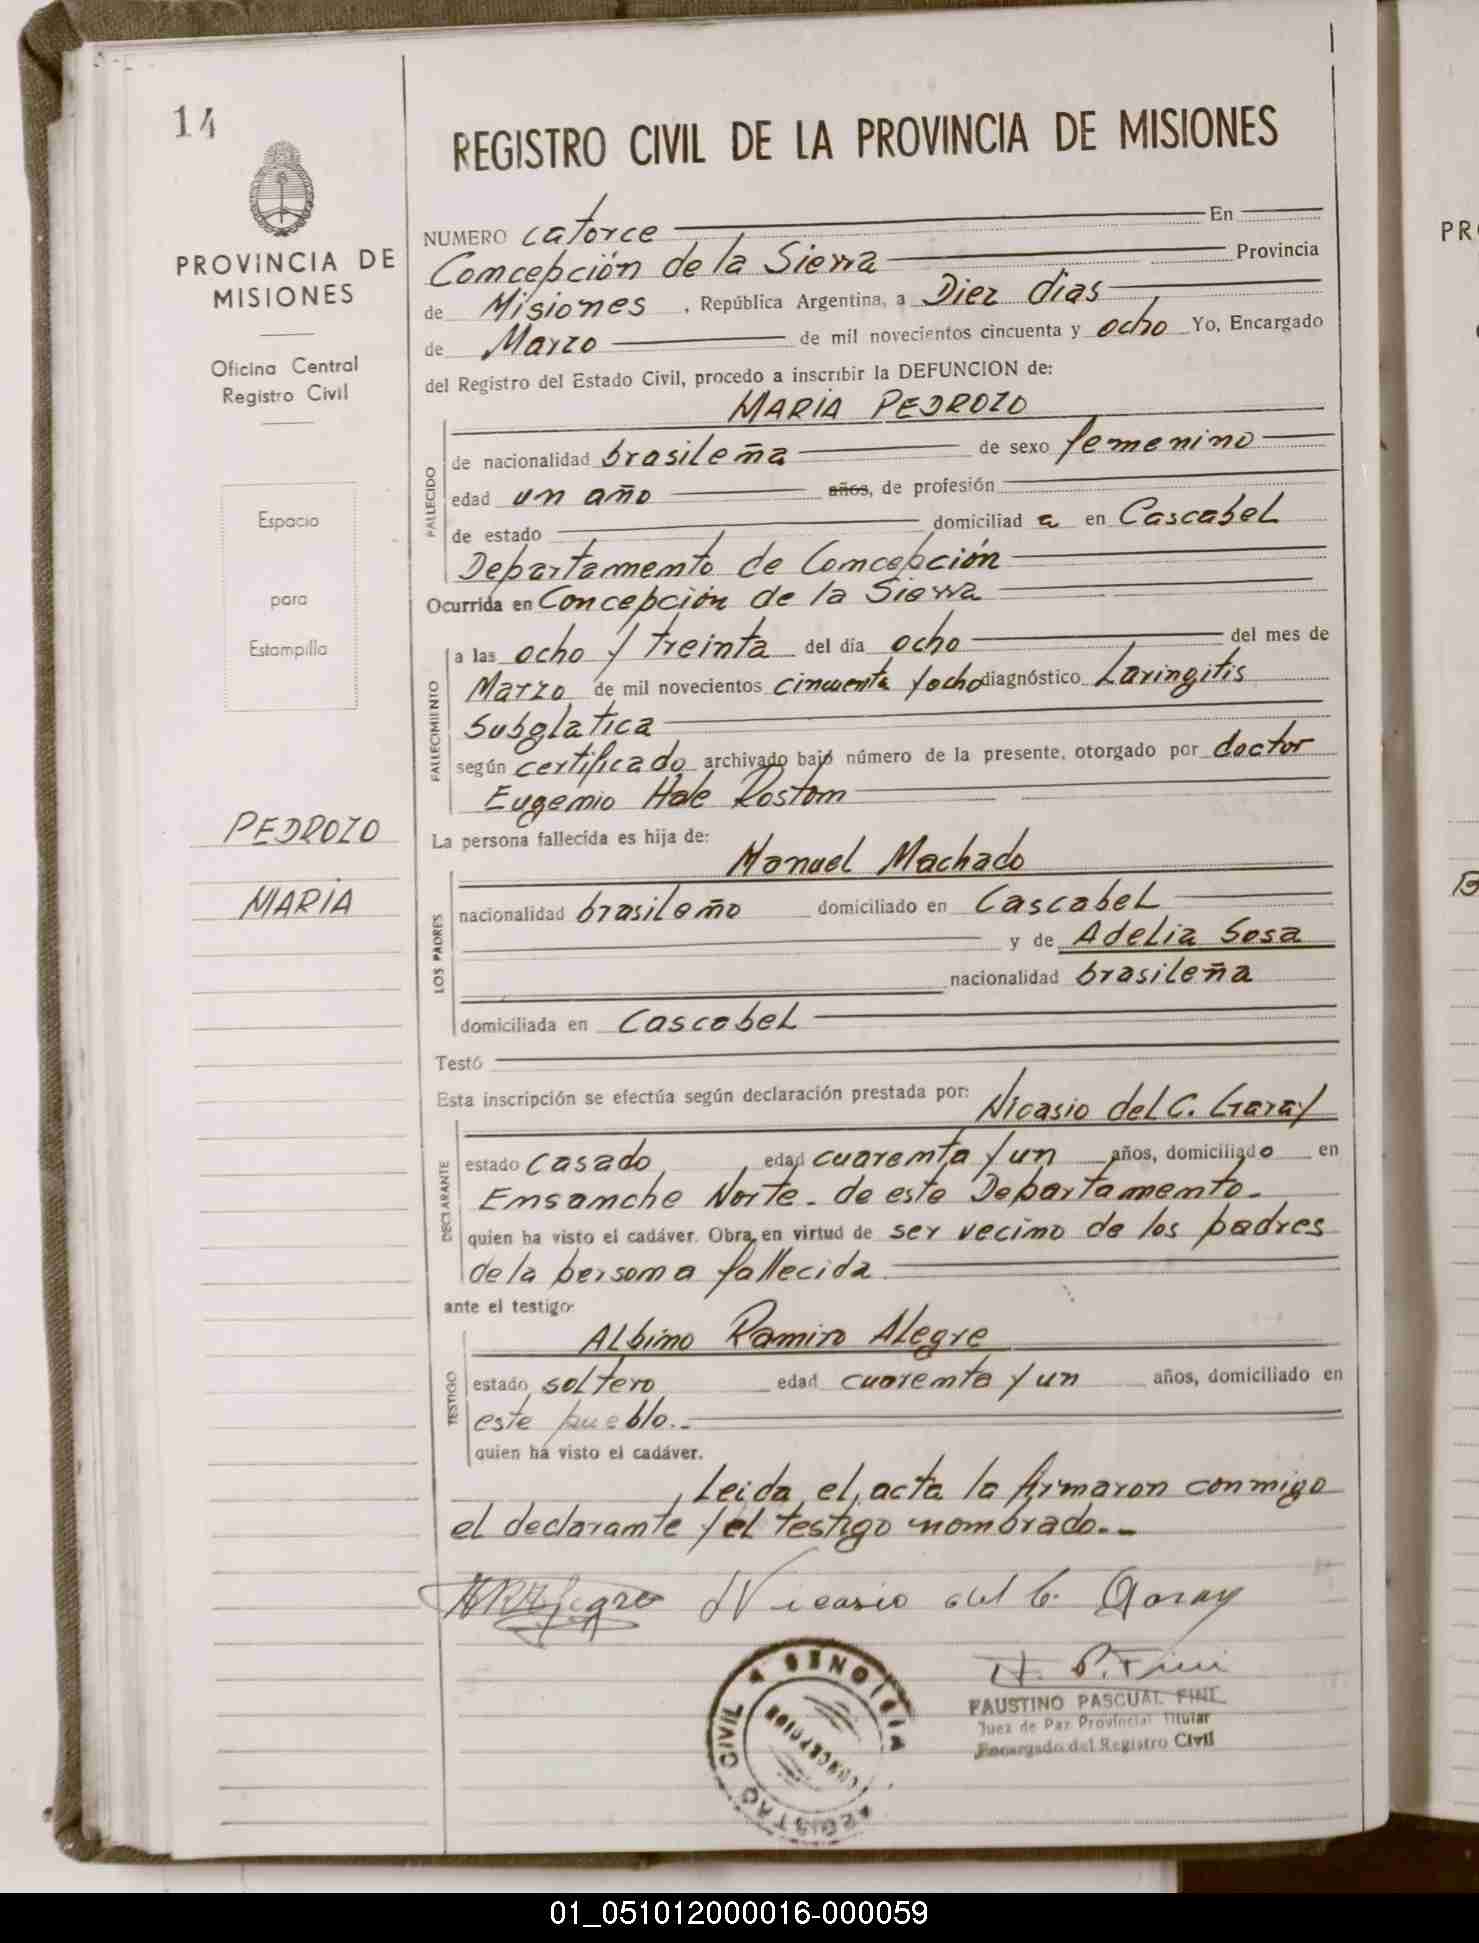 14
PROVINCIA DE
MISIONES
Oficina Central
Registro Civil
Espacio
para
Estampilla
PEDROZO
MARIA
REGISTRO CIVIL DE LA PROVINCIA DE MISIONES
NUMERO catorce En
Comcepción de la Sierra Provincia
de Misiones, República Argentina, a Diez dias
de Marzo de mil novecientos cincuenta y ocho Yo, Encargado
del Registro del Estado Civil, procedo a inscribir la DEFUNCION de:
MARIA PEDROZO
FALLECIDO
de nacionalidad brasileña de sexo femenino
edad un año años, de profesión
de estado domiciliad a en Cascabel
Departamento de Comcepción
Ocurrida en Concepción de la Sierra
FALLECIMIENTO
a las ocho y treinta del día ocho del mes de
Marzo de mil novecientos cincuenta y ocho diagnóstico Laringitis
Subglatica
según certificado archivado bajo número de la presente, otorgado por doctor
Eugemio Hale Rostom
La persona fallecida es hija de:
Manuel Machado
LOS PADRES
nacionalidad brasileño domiciliado en Cascabel
y de Adelia Sosa
nacionalidad brasileña
domiciliada en Cascabel
Testó
Esta inscripción se efectúa según declaración prestada por: Nicasio del C. Garay
DECLARANTE
estado casado edad cuaremta y un años, domiciliado en
Emsamche Norte - de este Departamemto.
quien ha visto el cadáver. Obra en virtud de ser vecimo de los padres
de la persoma fallecida
ante el testigo:
Albimo Ramiro Alegre
TESTIGO
estado soltero edad cuaremta y un años, domiciliado en
este pueblo.-
quien ha visto el cadáver.
Leida el acta la firmaron conmigo
el declarante y el testigo nombrado.-
ARAlegre Nicasio del C. Garay
F. P. Fini
FAUSTINO PASCUAL FINI
Juez de Paz Provincial Titular
Encargado del Registro Civil
REGISTRO CIVIL MISIONES
CONCEPCION
PR
B
01_051012000016-000059